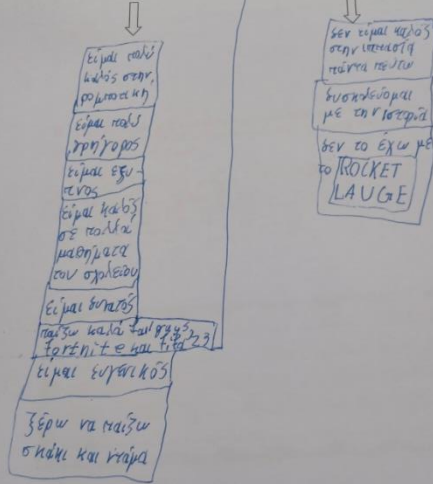 είμαι πολύ
είμαι πολύ
είμαι έξυ-
πνος
είμαι καλός
σε
μαθήματα
του σχολείου
είμαι δυνατός
παίζω καλά fall guys
fortnite και fifa 23
είμαι ευγενικός
ξέρω να παίζω
σκάκι και ντάμα
δεν είμαι καλός
στην ιππασία
πάντα πέφτω
δυσκολεύομαι
με την ιστορία
δεν το έχω με
το ROCKET
LAUGE